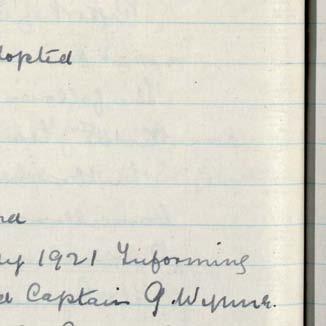 dopted
nd
ly 1921 Informing
d Captain G. Wynne.